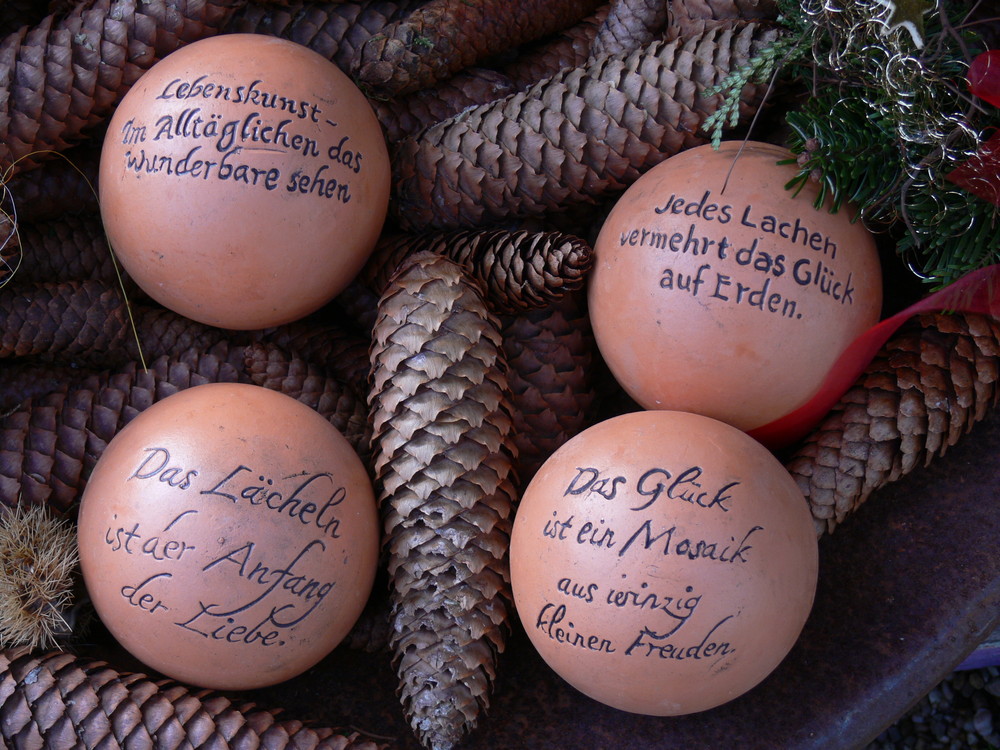 Lebenskunst-
Im Alltäglichen das
wunderbare sehen
Jedes Lachen
vermehrt das Glück
auf Erden.
Das Lächeln
ist der Anfang
der Liebe.
Das Glück
ist ein Mosaik
aus winzig
kleinen Freuden.